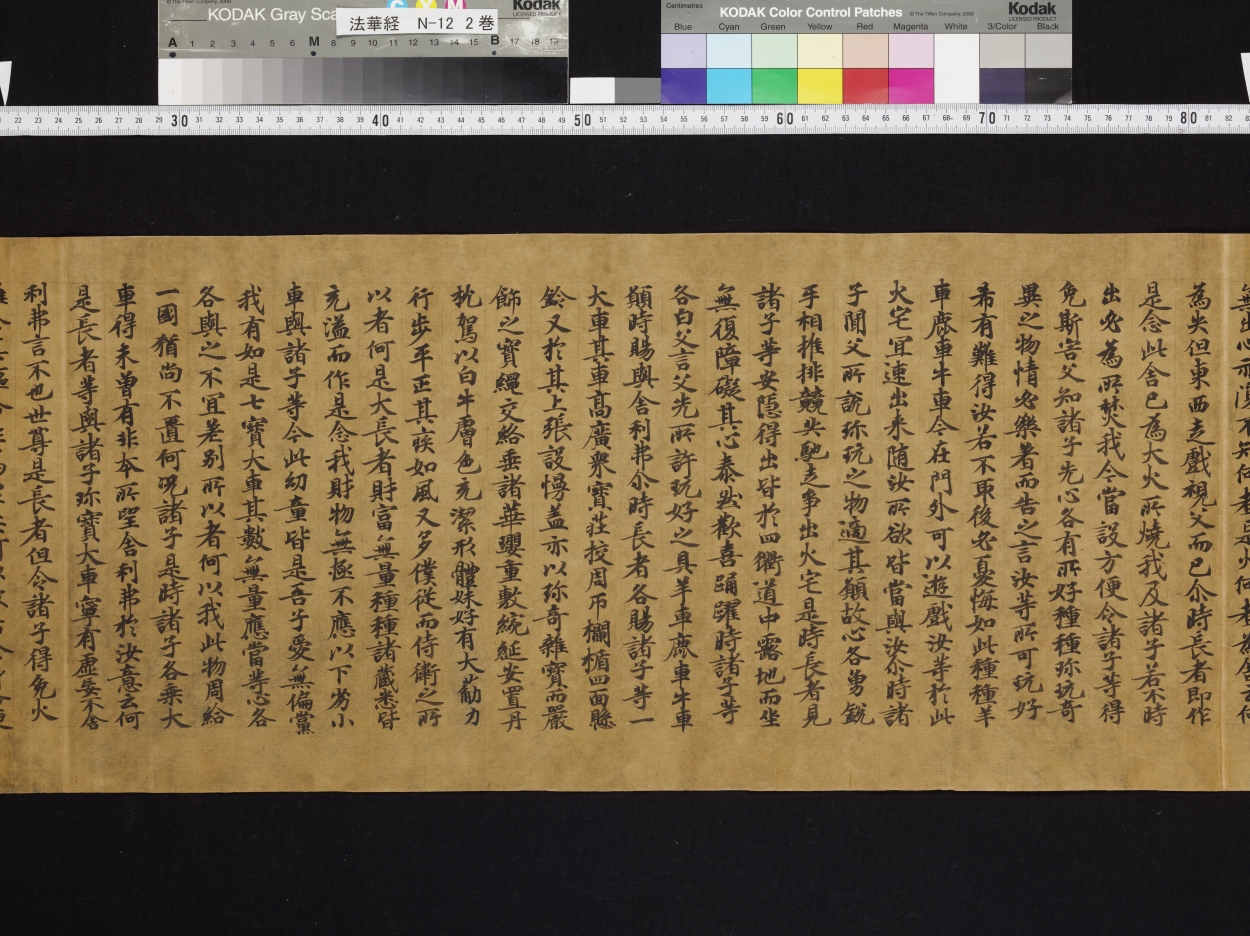 KODAK Gray Sca
法華経 N-12 2巻
Kodak
LICENSED PRODUCT
C Y M
A 1 2 3 4 5 6 M 8 9 10 11 12 13 14 15 B 17 18 19
Centimetres
KODAK Color Control Patches
© The Tiffen Company, 2000
Kodak
LICENSED PRODUCT
Blue Cyan Green Yellow Red Magenta White 3/Color Black
22 23 24 25 26 27 28 29 30 31 32 33 34 35 36 37 38 39 40 41 42 43 44 45 46 47 48 49 50 51 52 53 54 55 56 57 58 59 60 61 62 63 64 65 66 67 68 69 70 71 72 73 74 75 76 77 78 79 80 81 82
為失但東西走戲視父而已尒時長者即作
是念此舍已為大火所燒我及諸子若不時
出必為所焚我今當設方便令諸子等得
免斯害父知諸子先心各有所好種種珎玩奇
異之物情必樂著而告之言汝等所可玩好
希有難得汝若不取後必憂悔如此種種羊
車鹿車牛車今在門外可以遊戲汝等於此
火宅宜速出来随汝所欲皆當與汝尒時諸
子聞父所說珎玩之物適其願故心各勇銳
手相推排競共馳走爭出火宅是時長者見
諸子等安隱得出皆於四衢道中露地而坐
無復障礙其心泰然歡喜踊躍時諸子等
各白父言父先所許玩好之具羊車鹿車牛車
願時賜與舍利弗尒時長者各賜諸子等一
大車其車高廣衆寶莊挍周帀欄楯四面懸
鈴又於其上張設幰盖亦以珎奇雜寶而嚴
飾之寶繩交絡垂諸華瓔重敷綩綖安置丹
枕駕以白牛膚色充潔形體姝好有大筋力
行步平正其疾如風又多僕従而侍衛之所
以者何是大長者財富無量種種諸藏悉皆
充溢而作是念我財物無極不應以下劣小
車與諸子等今此幼童皆是吾子愛無偏黨
我有如是七寶大車其數無量應當等心各
各與之不宜差別所以者何以我此物周給
一國猶尚不匱何況諸子是時諸子各乗大
車得未曽有非本所望舍利弗於汝意云何
是長者等與諸子珎寶大車寧有虛妄不舍
利弗言不也世尊是長者但令諸子得免火